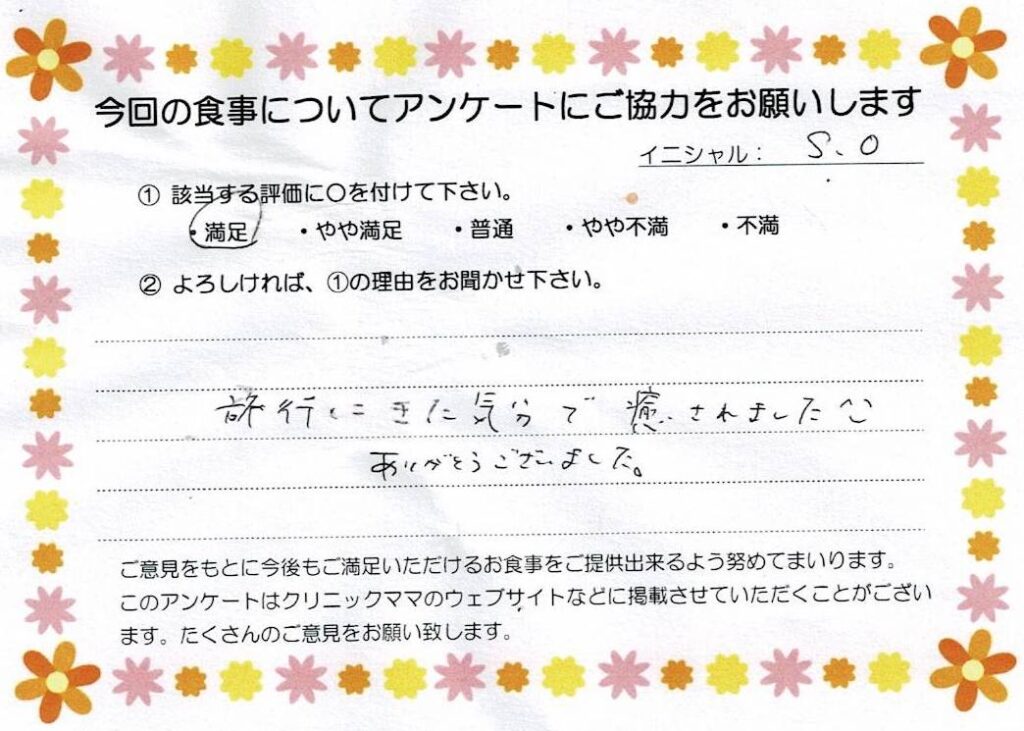 今回の食事についてアンケートにご協力をお願いします
イニシャル： S、O
① 該当する評価に〇を付けて下さい。
・満足 ・やや満足 ・普通 ・やや不満 ・不満
② よろしければ、①の理由をお聞かせ下さい。
旅行にきた気分で 癒されました^^
ありがとうございました。
ご意見をもとに今後もご満足いただけるお食事をご提供出来るよう努めてまいります。
このアンケートはクリニックママのウェブサイトなどに掲載させていただくことがござい
ます。たくさんのご意見をお願い致します。